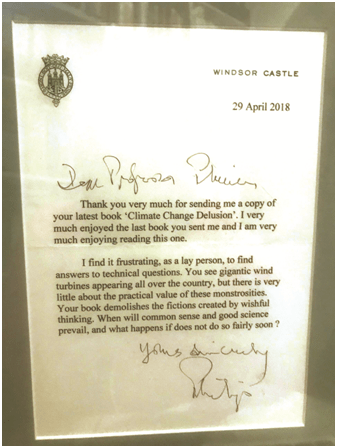 WINDSOR CASTLE
29 April 2018
Dear Professor
Thank you very much for sending me a copy of
your latest book 'Climate Change Delusion'. I very
much enjoyed the last book you sent me and I am very
much enjoying reading this one.
I find it frustrating, as a lay person, to find
answers to technical questions. You see gigantic wind
turbines appearing all over the country, but there is very
little about the practical value of these monstrosities.
Your book demolishes the fictions created by wishful
thinking. When will common sense and good science
prevail, and what happens if does not do so fairly soon ?
Yours sincerely
Philip